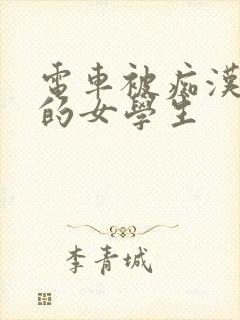 電車被痴漢
的女學生
李青城